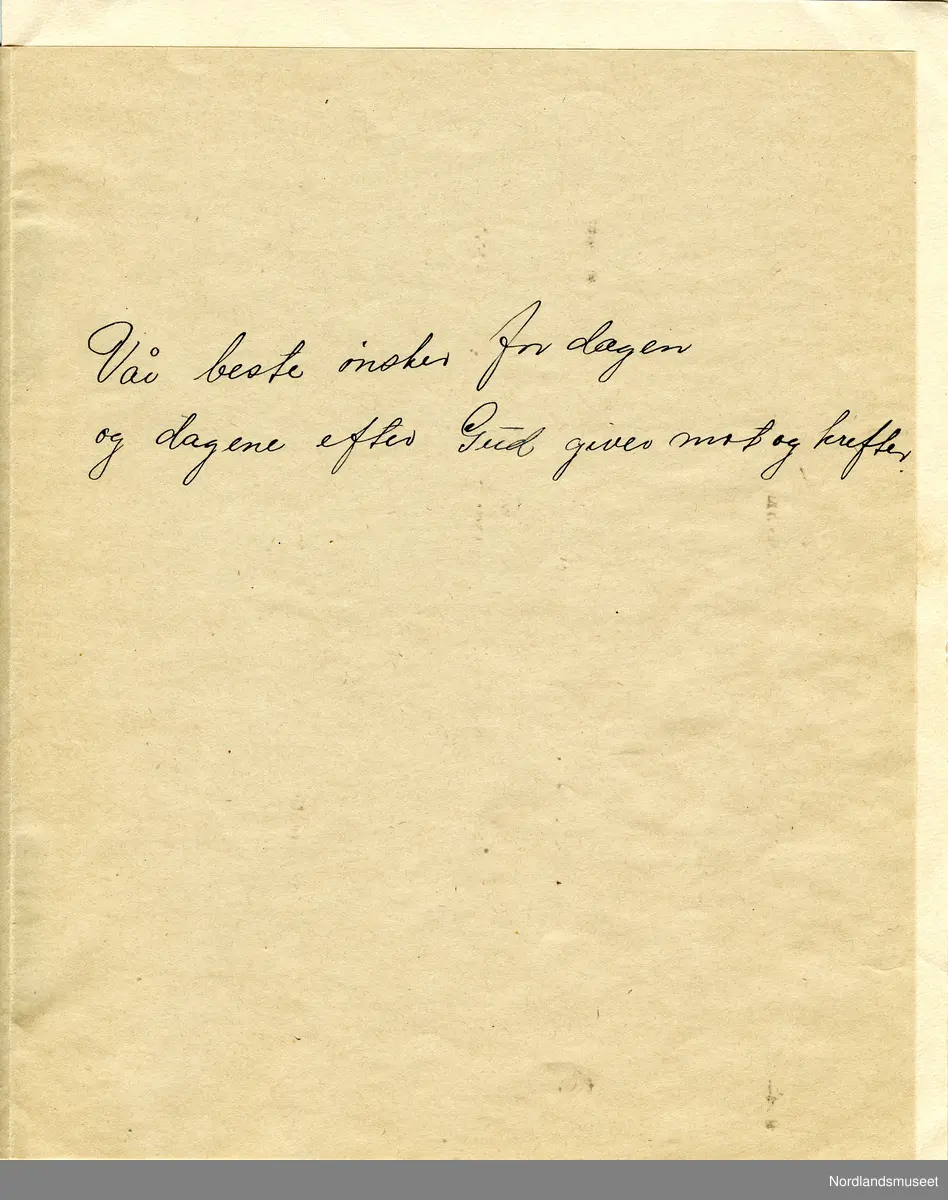 Vår beste ønsker for dagen
og dagene efter Gud giver mot og krefter.
Nordlandsmuseet